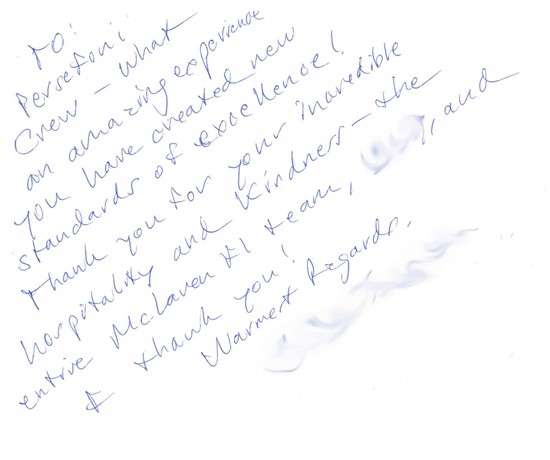 TO:
Persefoni
Crew - What
an amazing experience
you have created new
standards of excellence!
Thank you for your incredible
hospitality and kindness - the
entire McLaren F1 team, , and
I thank you!
Warmest Regards,